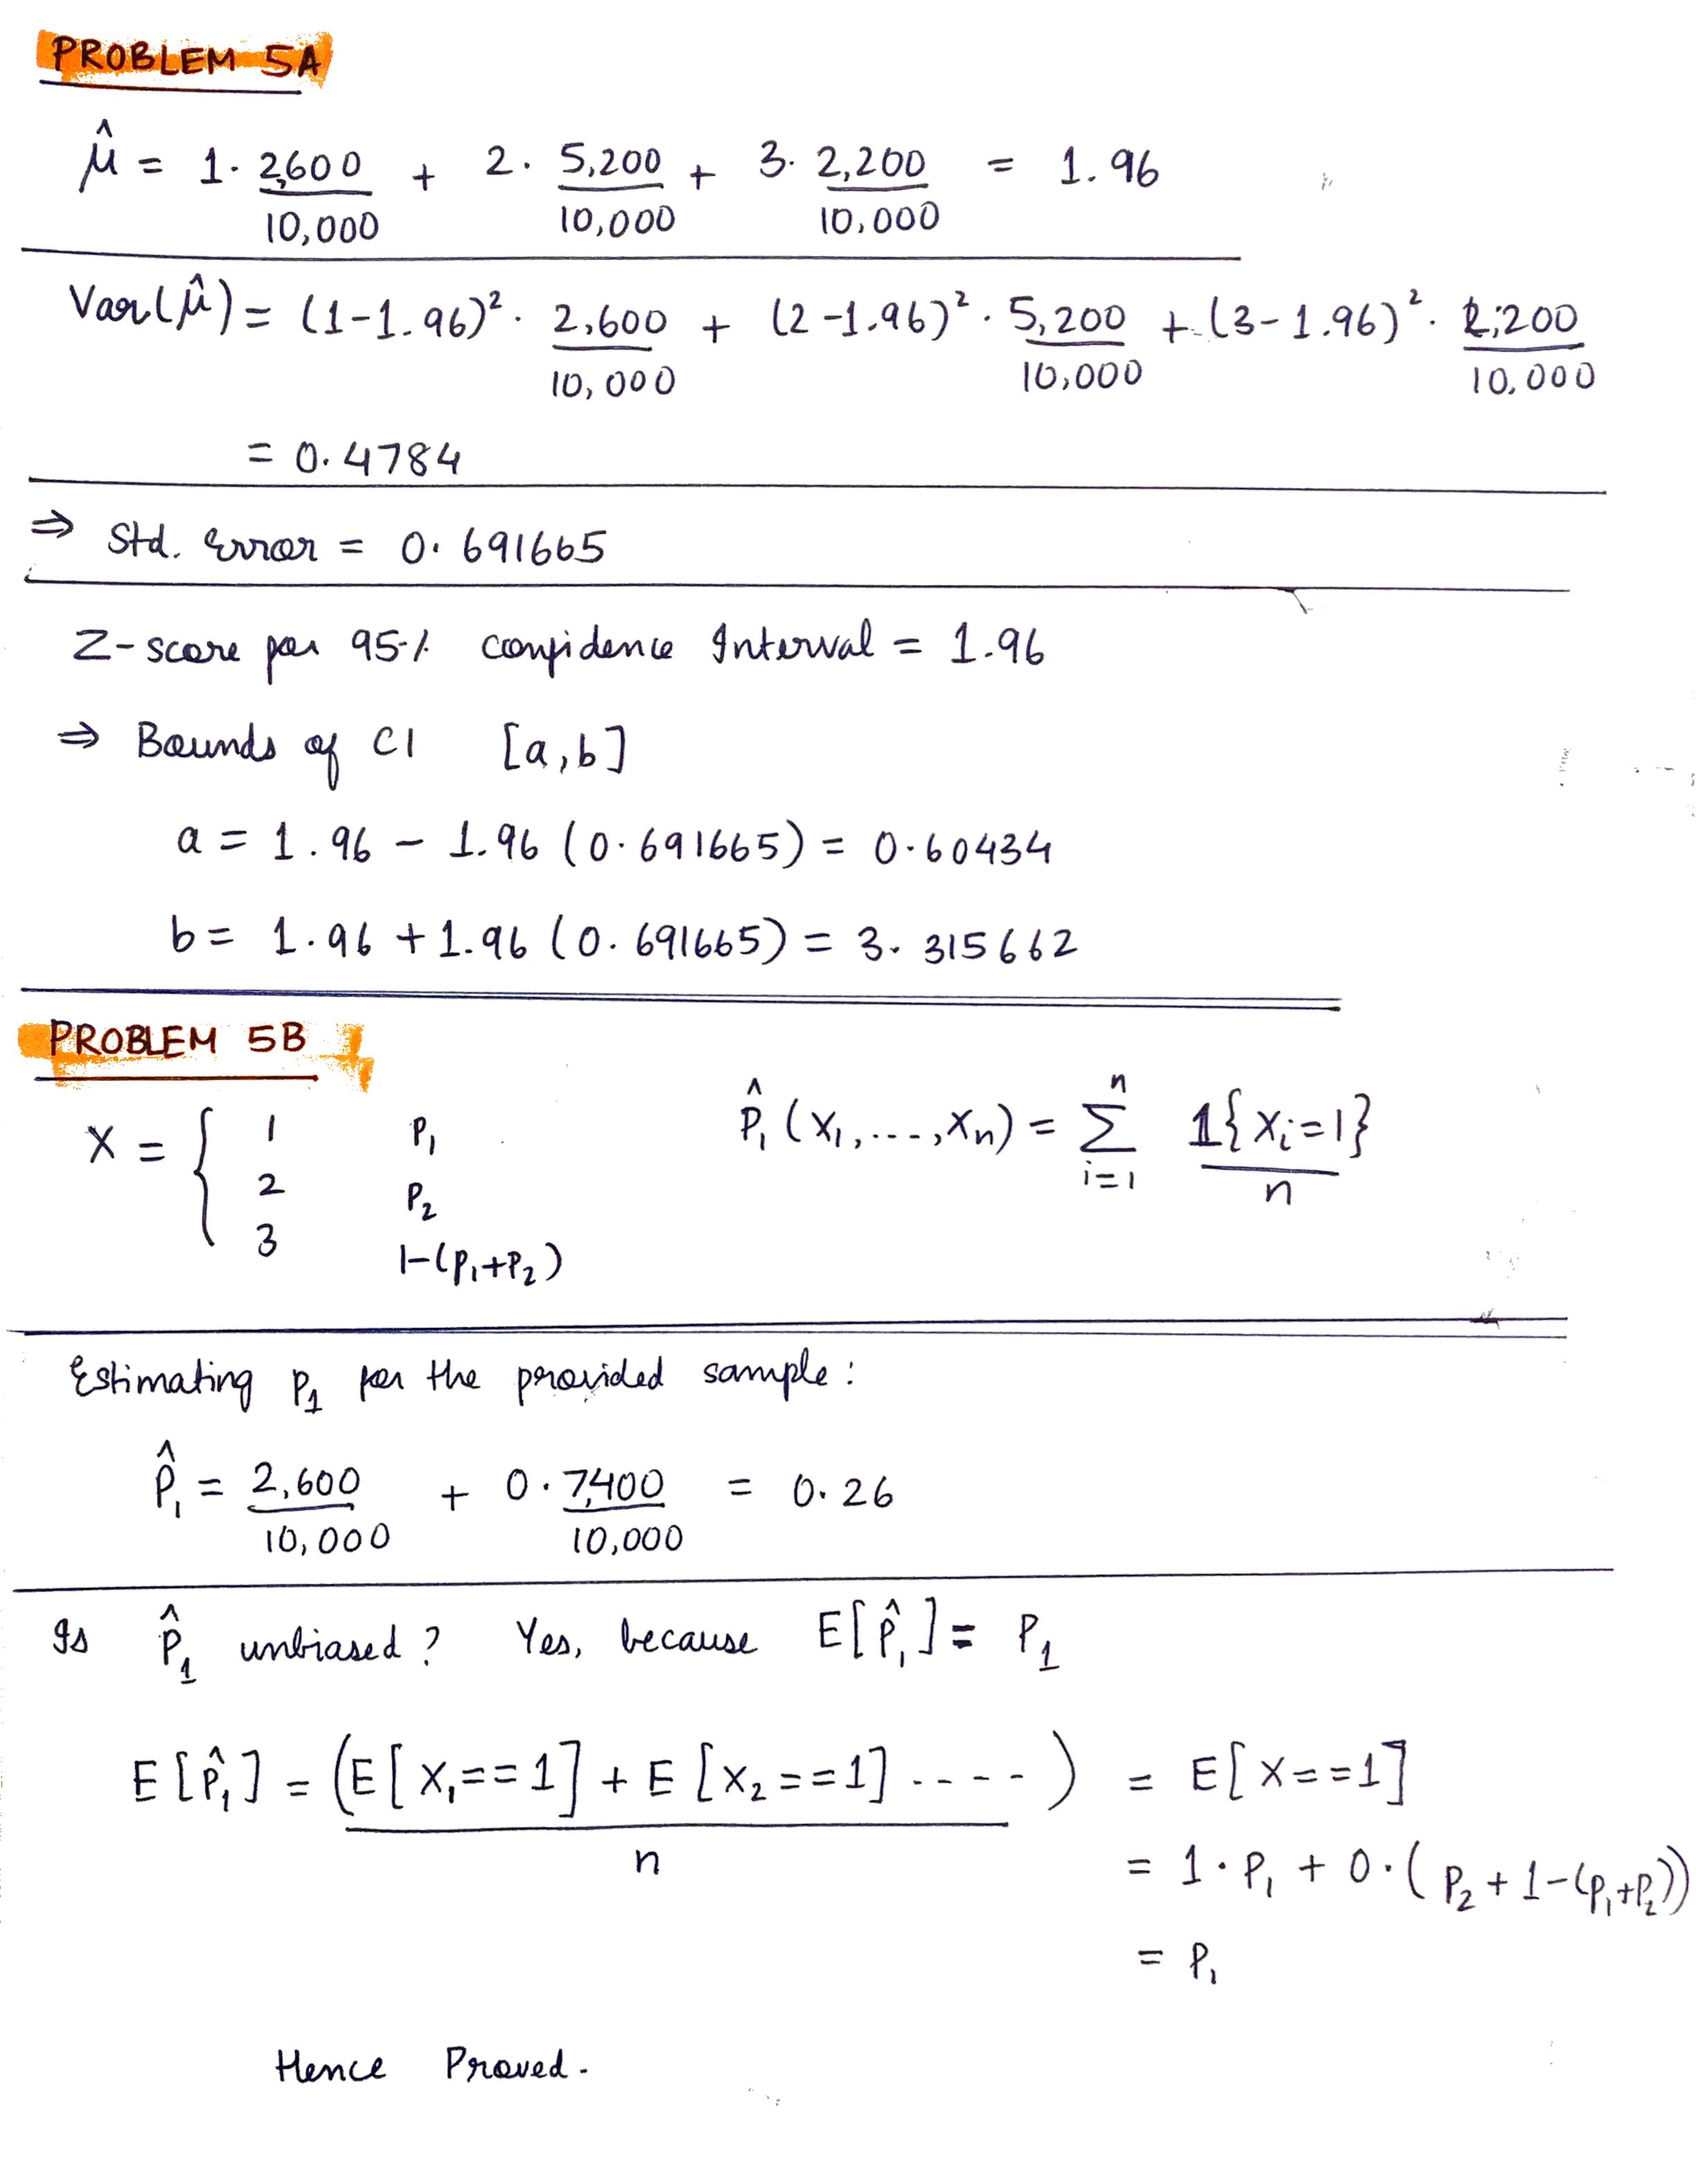 PROBLEM 5A
μ̂ = 1. 2,600/10,000 + 2. 5,200/10,000 + 3. 2,200/10,000 = 1.96
Var(μ̂) = (1-1.96)². 2,600/10,000 + (2-1.96)². 5,200/10,000 + (3-1.96)². 2,200/10,000
= 0.4784
⇒ Std. Error = 0.691665
Z-score for 95% confidence Interval = 1.96
⇒ Bounds of CI [a,b]
a = 1.96 - 1.96 (0.691665) = 0.60434
b = 1.96 + 1.96 (0.691665) = 3.315662
PROBLEM 5B
X = { 1 P₁
2 P₂
3 1-(P₁+P₂)
P̂₁ (X₁,....,Xn) = Σ_{i=1}^{n} 1{Xi=1}/n
Estimating P₁ for the provided sample:
P̂₁ = 2,600/10,000 + 0. 7,400/10,000 = 0.26
Is P̂₁ unbiased? Yes, because E[P̂₁] = P₁
E[P̂₁] = (E[X₁==1] + E[X₂==1] ....)/n = E[X==1]
= 1.P₁ + 0.(P₂+1-(P₁+P₂))
= P₁
Hence Proved.